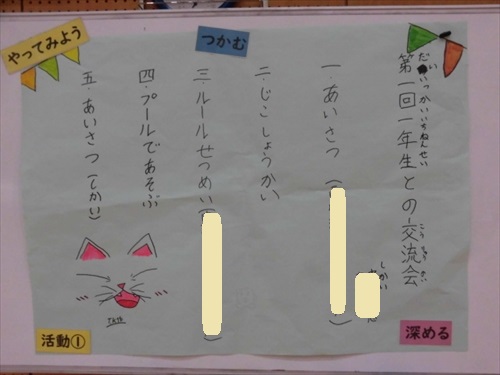 やってみよう
つかむ
第一回一年生との交流会
だいいっかいいちねんせい
こうりゅうかい
一.あいさつ(
しかい
)
二.じこしょうかい
三.ルールせつめい(
)
四.プールであそぶ
五.あいさつ(しかい)
活動①
深める